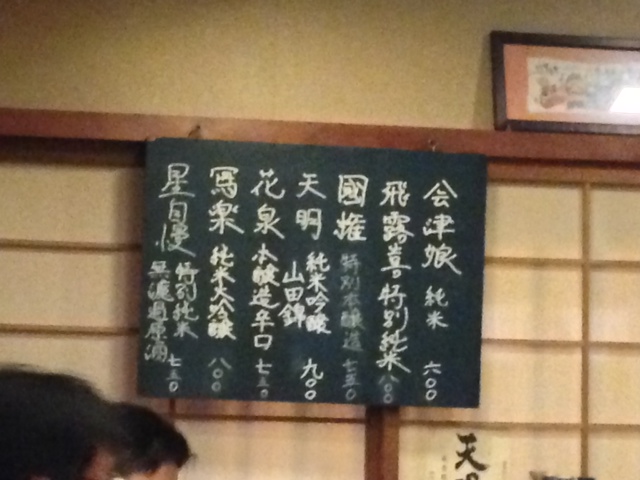 会津娘 純米 六〇〇
飛露喜 特別純米 八〇〇
國権 特別本醸造 七五〇
天明 純米吟醸 山田錦 九〇〇
花泉 本醸造辛口 七五〇
寫楽 純米大吟醸 八〇〇
星自慢 特別純米 無濾過原酒 七五〇
天明